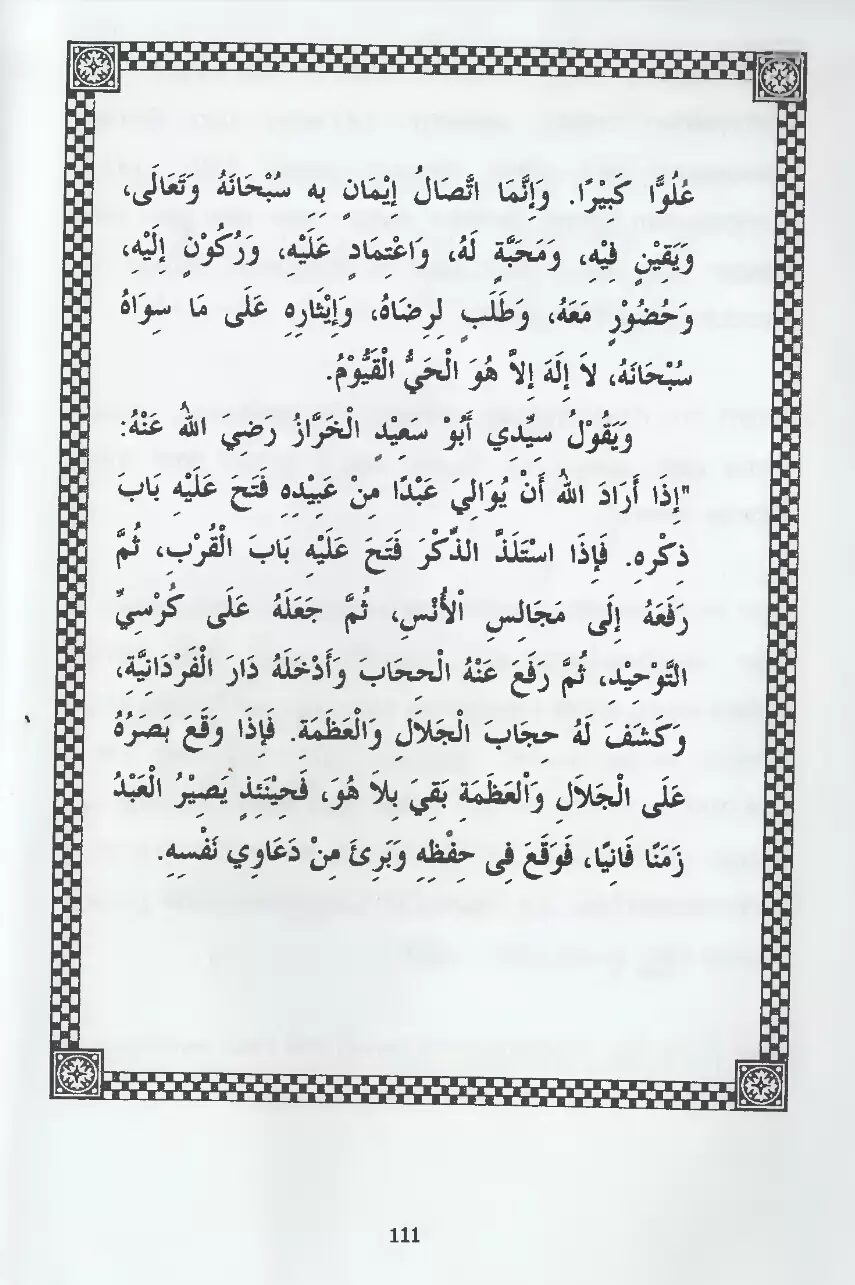 عُلُوًّا كَبِيْرًا. وَإِنَّمَا اتِّصَالُ إِيْمَانٍ بِهِ سُبْحَانَهُ وَتَعَالَى،
وَيَقِيْنٍ فِيْهِ، وَمَحَبَّةٍ لَهُ، وَاعْتِمَادٍ عَلَيْهِ، وَرُكُوْنٍ إِلَيْهِ،
وَحُضُوْرٍ مَعَهُ، وَطَلَبٍ لِرِضَاهُ، وَإِيْثَارِهِ عَلَى مَا سِوَاهُ
سُبْحَانَهُ، لاَ إِلَهَ إِلاَّ هُوَ الْحَيُّ الْقَيُّوْمُ.
وَيَقُوْلُ سَيِّدِي أَبُوْ سَعِيْدٍ الْخَرَّازُ رَضِيَ اللهُ عَنْهُ:
"إِذَا أَرَادَ اللهُ أَنْ يُوَالِيَ عَبْدًا مِنْ عَبِيْدِهِ فَتَحَ عَلَيْهِ بَابَ
ذِكْرِهِ. فَإِذَا اسْتَلَذَّ الذِّكْرَ فَتَحَ عَلَيْهِ بَابَ الْقُرْبِ، ثُمَّ
رَفَعَهُ إِلَى مَجَالِسِ اْلأُنْسِ، ثُمَّ جَعَلَهُ عَلَى كُرْسِيِّ
التَّوْحِيْدِ، ثُمَّ رَفَعَ عَنْهُ الْحِجَابَ وَأَدْخَلَهُ دَارَ الْفَرْدَانِيَّةِ،
وَكَشَفَ لَهُ حِجَابَ الْجَلاَلِ وَالْعَظَمَةِ. فَإِذَا وَقَعَ بَصَرُهُ
عَلَى الْجَلاَلِ وَالْعَظَمَةِ بَقِيَ بِلاَ هُوَ، فَحِيْنَئِذٍ يَصِيْرُ الْعَبْدُ
زَمَنًا فَانِيًا، فَوَقَعَ فِى حِفْظِهِ وَبَرِئَ مِنْ دَعَاوِي نَفْسِهِ.
111